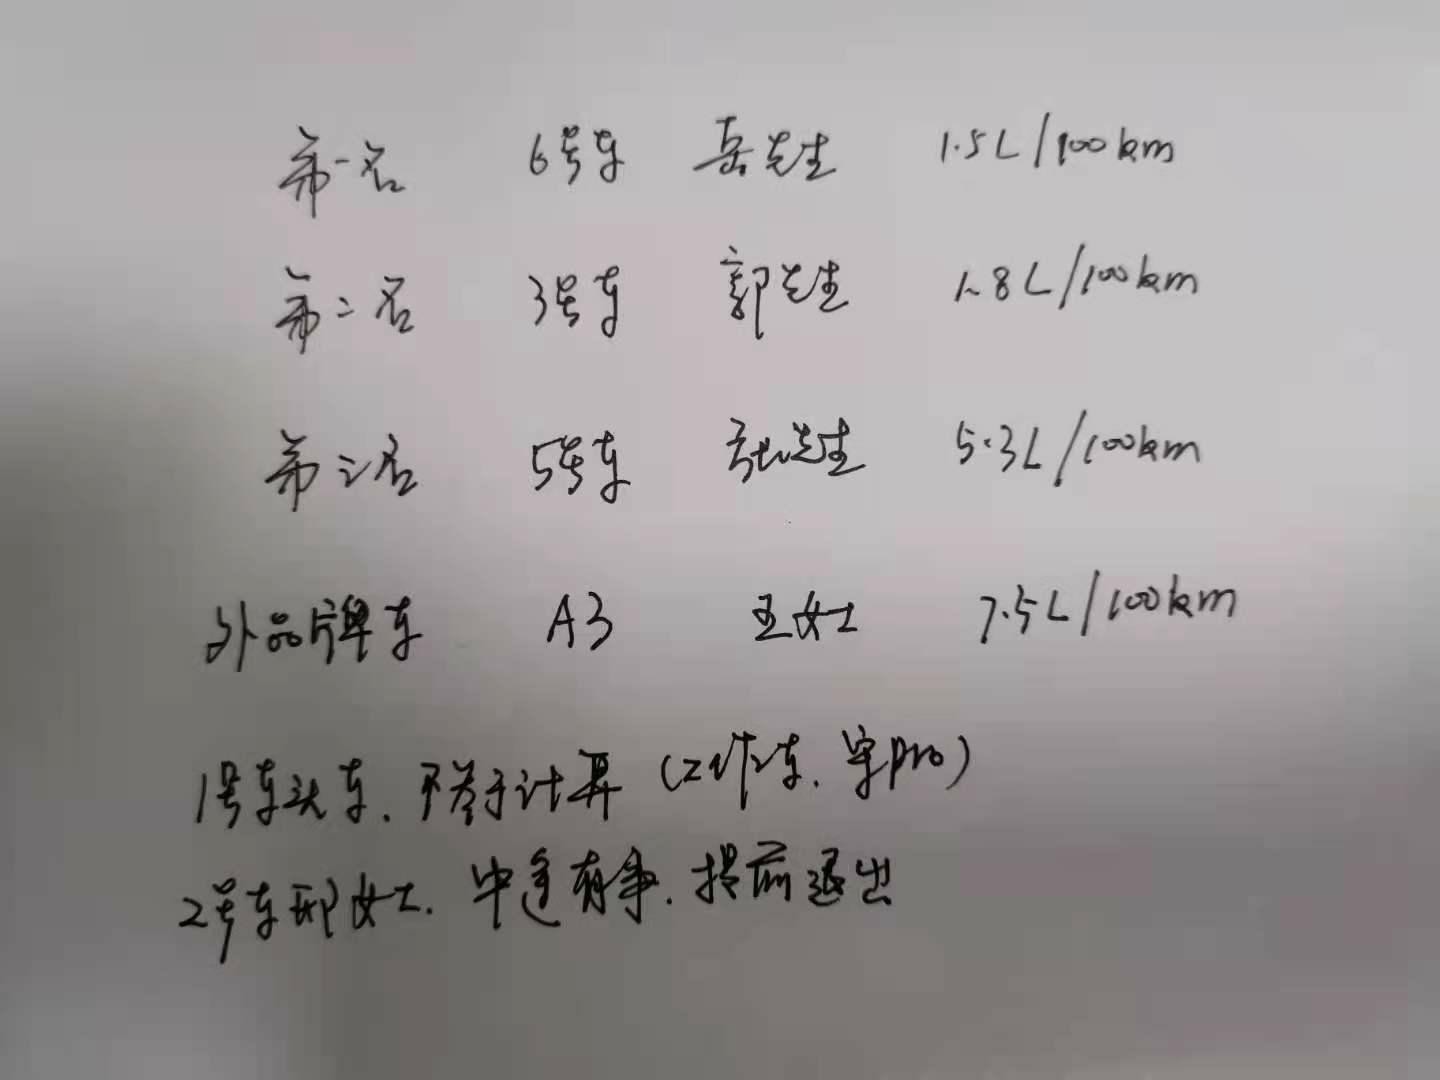 第一名 6号车 岳先生 1.5L/100km
第二名 3号车 郭先生 1.8L/100km
第三名 5号车 张先生 5.3L/100km
外品牌车 A3 王女士 7.5L/100km
1号车头车.不参于计算(工作车.宋pro)
2号车邢女士.中途有事.提前退出